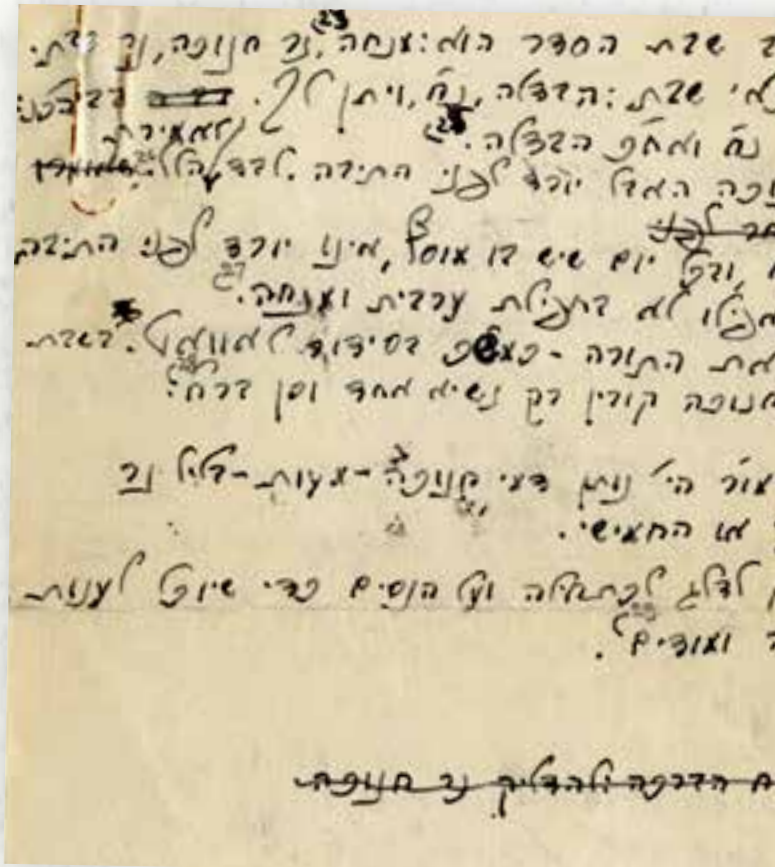 ב שבת הסדר הוא: מנחה, נר חנוכה, נר שבת. (23
צאי שבת: הבדלה, נ"ח, ויתן לך.
נ"ח ואח"כ הבדלה. (25
וכה האבל יורד לפני התיבה. לבד
ובכל יום שיש בו מוסף, אינו יורד לפני התיבה
אפילו לא בתפילת ערבית ומנחה. (27
את התורה - כמ"ש בסידור בשבת
חנוכה קורין רק נשיא אחד וכן בר"ח. (28
הי' נותן דמי חנוכה - מעות - בליל נר
או החמישי.
לדלג לכתחילה ועל הנסים כדי שיוכל לענות
ומודים. (29
הברכה ולהדליק נר חנוכה